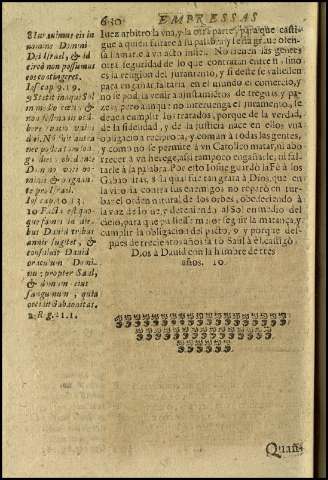 630 EMPRESSAS
Iuez arbitro la vna, y la otra parte, para que casti-
gue a quien faltare a su palabra, y seria grave ofen-
sa llamarle a vn acto infiel. No tienen las gentes
otra seguridad de lo que contratan entre si, sino
es la religion del juramento, y si deste se valiessen
para engañar faltaria en el mundo el comercio, y
no se podria venir a ajustamientos de treguas y pa-
zes, pero aunque no intervenga el juramento, se
deven cumplir los tratados, porque de la verdad,
de la fidelidad, y de la justicia nace en ellos vna
obligacion reciproca, y comun à todas las gentes,
y como no se permite à vn Catolico matar, ni abo-
rrecer a vn herege, assi tampoco engañarle, ni fal-
tarle a la palabra. Por esto Iosue guardó la Fè à los
Gabaonitas, à la qual fue tan grata à Dios, que en
la vitoria contra sus enemigos no reparò en tur-
bar el orden natural de los orbes, obedeciendo à
la voz de Iosue, y deteniendo al Sol en medio del
cielo, para que pudiesse mas seguir la matança, y
cumplir la obligacion del pacto, 9 y porque des-
pues de trecientos años la Saul, le castigó
Dios à David con la hambre de tres
años. 10.
in
nomine Domini
Dei Israel, & id
circò non possumus
eos contingere.
Iosep. 9. 19.
9 Stetit itaque Sol
in medio cœli, &
non festinavit oc-
cumbere
Non fuit antea
nec postea
dies, obediente
Domino voci ho-
minis, & pugnan-
te pro Israel.
Iosep. 10. 13.
10 Facta est quo-
que fames in die-
bus David tribus
annis iugiter, &
consuluit David
oraculum Domi-
ni: propter Saul,
& domum eius
sanguinum, quia
occidit Gabaonitas.
2. Reg. 21. 1.
Quan-